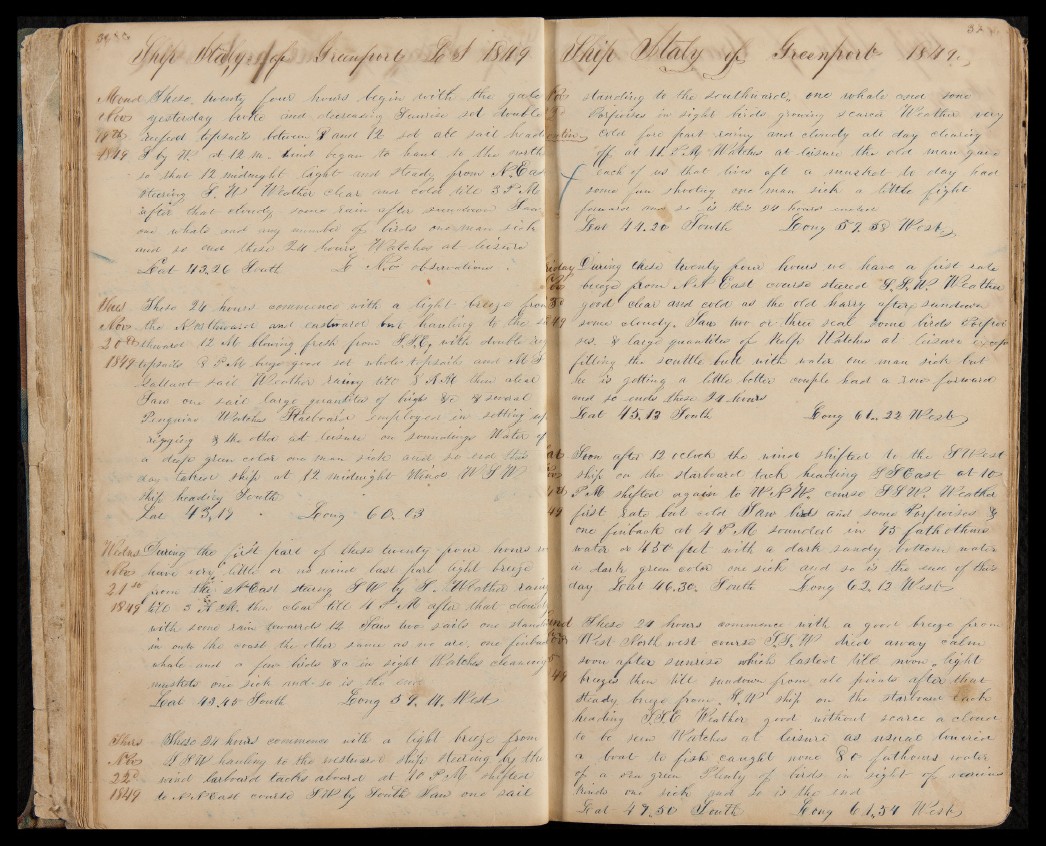 Ship Italy of Greenport L I 1849
Mond These twenty four hours begin with the gale
Nov yesterday broke and decreasing Sunrise set double
19th reefed topsails between 8 and 12 set all sail head
1849 S by W at 12 m. wind began to haul to the north
so that 12 midnight light and steady from N. Eas
steering S. W Weather clear and cold till 3 P M
after that cloudy some rain after sundown Saw
one whale and any number of birds one man sick
and so end these 24 hours Watches at leisure
Lat 43.26 South Lo No observations
Tues These 24 hours commence with a light breeze from
Nov the Northward and eastward but hauling to the
20th 12 M blowing fresh from with double
1849 topsails 8 P M set whole topsails and M
Gallant sail Weather rainy till 8 A M then clear
Saw one sail large quantities of &c & several
Penguins Watches Starboard employed in setting up
rigging & the other at leisure on soundings Water of
a deep green color one man sick and so end this
day tacked ship at 12 midnight Wind W S W
Ship heading South
Lat 43,19 Long 60.03
Wednes During the first part of these twenty four hours we
Nov have very little or no wind last part light breeze
21st from the N East steering S W by S. Weather rainy
1849 till 3 then clear till 11 P M after that cloudy
with some rain towards 12 Saw two sails one standing
in onto the coast the other same as we are, one finback
whale and a few birds &c in sight Watches cleaning
muskets one sick and so is the end
Lat 43.45 South Long 59. 14. West
Thurs These 24 hours commence with a light breeze from
Nov S S W hauling to the westward ship steering by the
22d wind larboard tacks aboard at 10 P M shifted
1849 to N N East course S W by South Saw one sail
Ship Italy of Greenport 1849.
standing to the southward, one whale and some
Porpoises in sight birds growing scarce Weather very
cold fore part rainy and cloudy all day clearing
off at 11 P M Watches at leisure the old man gave
each of us that lives aft a musket to day had
some fun shooting one man sick a little fight
forward and so is this 24 hours ended
Lat 44.20 South Long 59.58 West
Friday During these twenty four hours we have a first rate
breeze from N N East course steered S, S, W Weather
good clear and cold as the old harry after sundown
1849 some cloudy. Saw two or three seal some birds Porpoi
ses. & large quantities of Kelp Watches at leisure except
filling the scuttle butt with water one man sick but
he is getting a little better couple had a row forward
and so ends these 24 hours
Lat 45.12 South Long 61.22 West
Soon after 12 oclock the wind shifted to the S West
ship on the starboard tack heading S S East at 10
P M shifted again to W N W. course S S W. Weather
first rate but cold Saw birds and some Porpoises &
one finback at 4 P M sounded in 75 fathoms
water or 450 feet with a dark sandy bottom water
a dark green color one sick and so is the end of this
day Lat 46,30, South Long 62.12 West
These 24 hours commence with a good breeze from
West North west course S, S, W died away calm
soon after sunrise which lasted till noon, light
breezes then till sundown from all points after that
steady breeze from S, W ship on the starboard tack
heading S S E Weather good without scarce a cloud
to be seen Watches at leisure as usual lowered
a boat to fish caught none 80 fathoms water
of a sea green Plenty of birds in sight of various
kinds one sick and so is the end
Lat 47.50 South Long 61.54 West